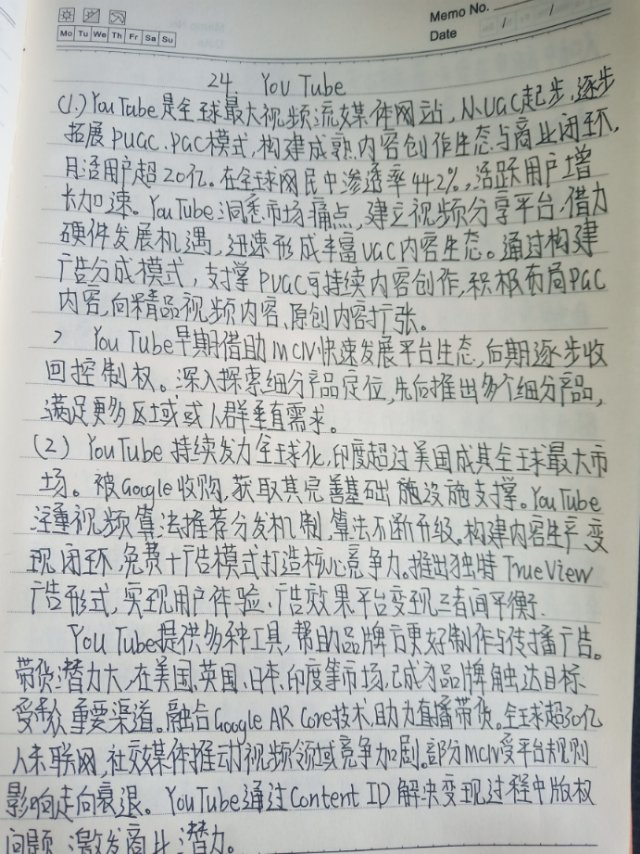 Memo No.
Mo Tu We Th Fr Sa Su
Date / /
24. YouTube
(1.) YouTube是全球最大视频流媒体网站,从UGC起步,逐步
拓展PUGC.PGC模式,构建成熟内容创作生态与商业闭环,
月活用户超20亿。在全球网民中渗透率44.2%,活跃用户增
长加速。YouTube洞悉市场痛点,建立视频分享平台,借力
硬件发展机遇,迅速形成丰富UGC内容生态。通过构建
广告分成模式,支撑PUGC可持续内容创作,积极布局PGC
内容,向精品视频内容、原创内容扩张。
YouTube早期借助MCN快速发展平台生态,后期逐步收
回控制权。深入探索细分产品定位,先后推出多个细分产品,
满足更多区域或人群垂直需求。
(2) YouTube持续发力全球化,印度超过美国成其全球最大市
场。被Google收购,获取其完善基础施设施支撑。YouTube
注重视频算法推荐分发机制,算法不断升级。构建内容生产变
现闭环,免费+广告模式打造核心竞争力。推出独特TrueView
广告形式,实现用户体验、广告效果平台变现三者间平衡.
YouTube提供多种工具,帮助品牌方更好制作与传播广告。
带货潜力大,在美国、英国、日本、印度等市场,已成为品牌触达目标
受众重要渠道。融合Google AR Core技术助力直播带货。全球超30亿
人未联网,社交媒体推动视频领域竞争加剧。部分MCN受平台规则
影响走向衰退。YouTube通过Content ID解决变现过程中版权
问题,激发商业潜力。